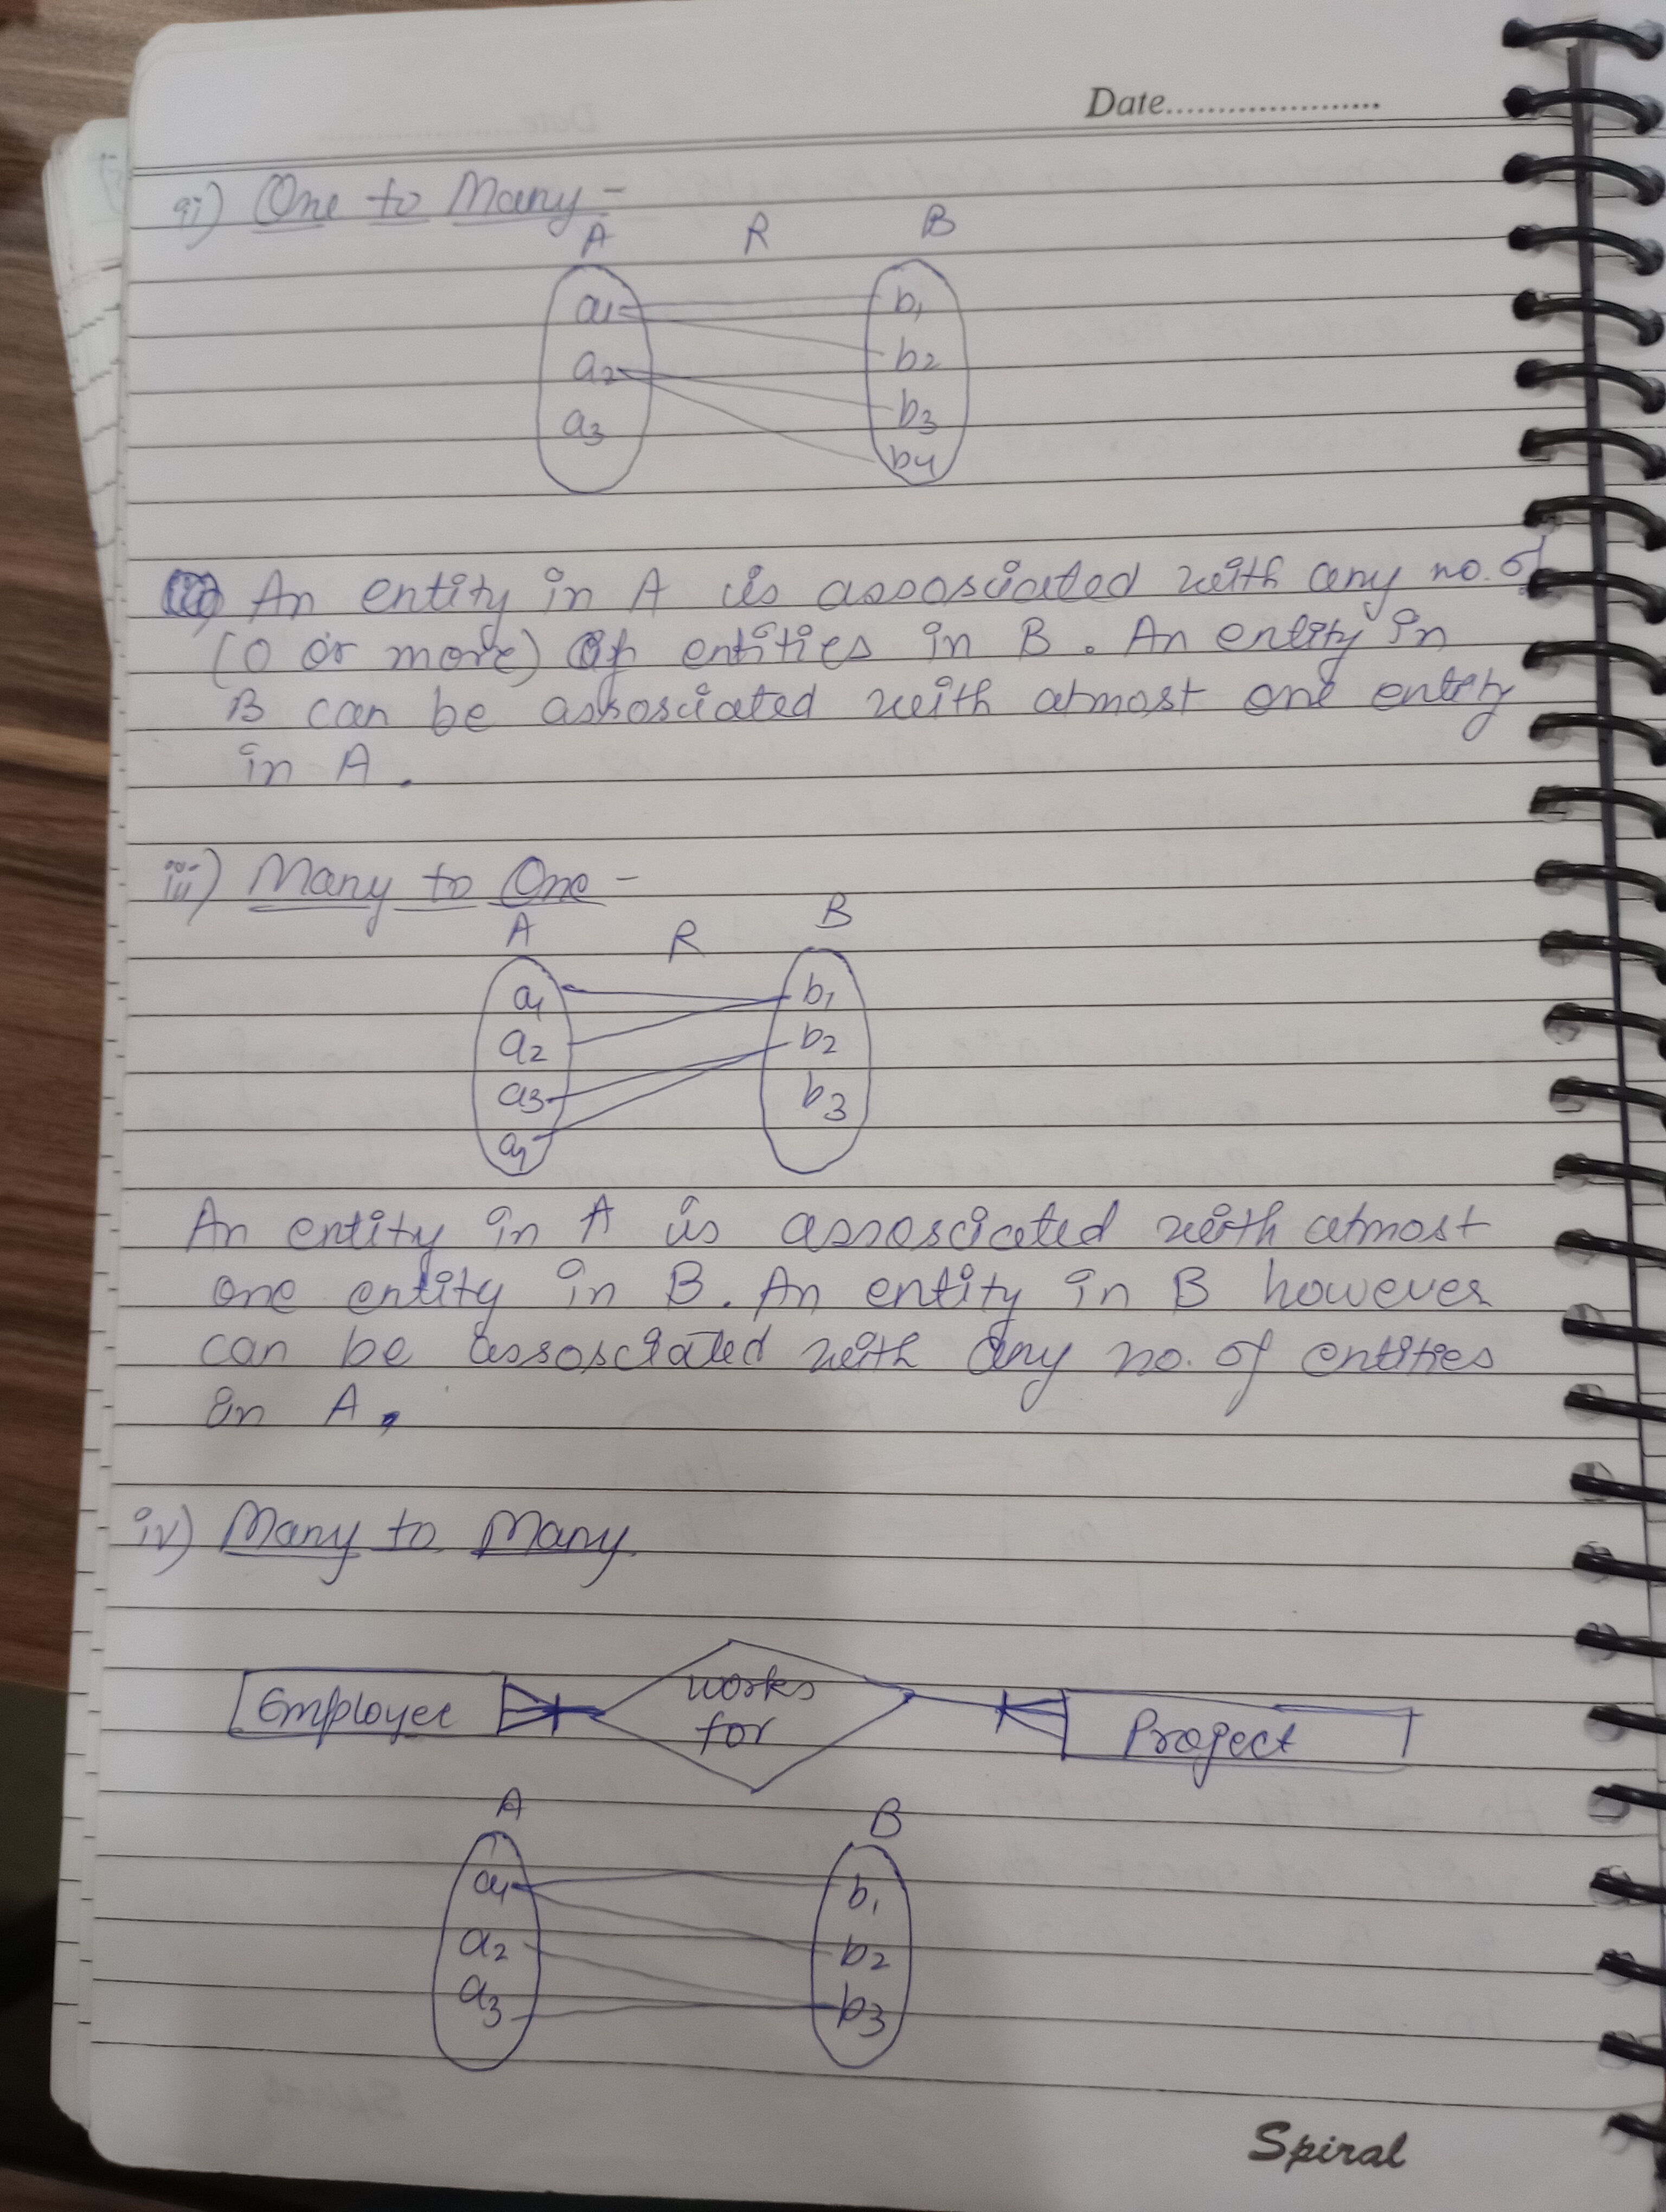 Date.....................
ii) One to Many -
A R B
a1 b1
a2 b2
a3 b3
b4
An entity in A is assosciated with any no. of
(0 or more) of entities in B. An entity in
B can be assosciated with atmost one entity
in A.
iii) Many to One -
A R B
a1 b1
a2 b2
a3 b3
a4
An entity in A is assosciated with atmost
one entity in B. An entity in B however
can be assosciated with any no. of entities
in A.
iv) Many to Many.
Employee works for Project
A B
a1 b1
a2 b2
a3 b3
Spiral